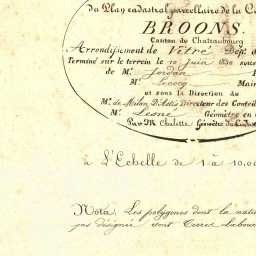 du Plan cadastral parcellaire de la C
BROONS
Canton de Chateaubourg
Arrondissement de Vitré Dép.
Terminé sur le terrein le 10 Juin 1830 sous
de Mr. Jordan
Mr. Maire
et sous la Direction du
Mr. de Directeur des Contrib
Mr. Lesne Géomètre en
Par Mr. Géomètre du Cadast
à L'Echelle de 1 à 10,00
Nota. Les polygones dont la natu
pas désignée sont Terres Labou